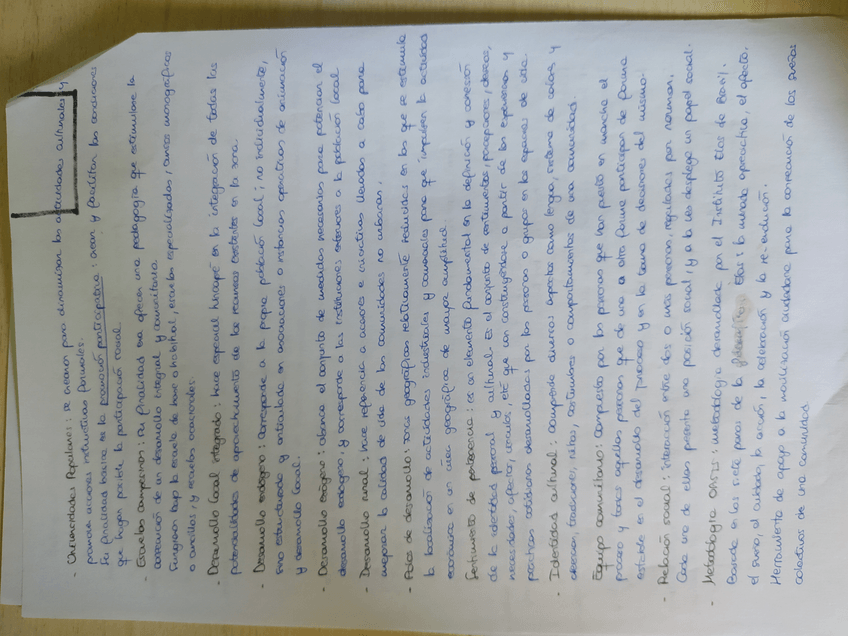 - Universidades Populares: se crearon para dinamizar las actividades culturales y
promover acciones instructivas formales.
Su finalidad básica es la promoción participativa: crear y facilitar las condiciones
que hagan posible la participación social.
- Escuelas campesinas: su finalidad era ofrecer una pedagogía que estimulase la
consecución de un desarrollo integral y comunitario.
Surgieron bajo la escuela de base o habitual, escuelas especializadas, cursos monográficos
o cursillos, y escuelas ocasionales.
- Desarrollo local integrado: hace especial hincapié en la integración de todas las
potencialidades de aprovechamiento de los recursos existentes en la zona.
- Desarrollo endógeno: corresponde a la propia población local; no individualmente,
sino estructurada y articulada en asociaciones o instancias operativas de animación
y desarrollo local.
- Desarrollo exógeno: abarca el conjunto de medidas necesarias para potenciar el
desarrollo endógeno, y corresponde a las instituciones exteriores a la población local
- Desarrollo rural: hace referencia a acciones e iniciativas llevadas a cabo para
mejorar la calidad de vida de las comunidades no urbanas.
- Polos de desarrollo: zonas geográficas relativamente reducidas en las que se estimula
la localización de actividades industriales y comerciales para que impulsen la actividad
económica en un área geográfica de mayor amplitud.
Sentimiento de pertenencia: es un elemento fundamental en la definición y conexión
de la identidad personal y cultural. Es el conjunto de sentimientos, percepciones, deseos,
necesidades, afectos, vínculos, etc que van construyéndose a partir de las experiencias y
prácticas cotidianas desarrolladas por las personas o grupos en los espacios de vida.
- Identidad cultural: comprende diversos aspectos como lengua, sistema de valores y
creencias, tradiciones, ritos, costumbres o comportamientos de una comunidad.
Equipo comunitario: compuesto por las personas que han puesto en marcha el
proceso y todas aquellas personas que de una u otra forma participan de forma
estable en el desarrollo del proceso y en la toma de decisiones del mismo.
- Relación social: interacción entre dos o más personas, reguladas por normas.
Cada una de ellas presenta una posición social, y a la vez despliega un papel social.
- Metodología OASIS: metodología desarrollada por el Instituto Elos de Brasil.
Basada en los siete pasos de la filosofía Elos: la mirada apreciativa, el afecto,
el sueño, el cuidado, la acción, la celebración y la re-evolución.
Herramienta de apoyo a la movilización ciudadana para la consecución de los sueños
colectivos de una comunidad